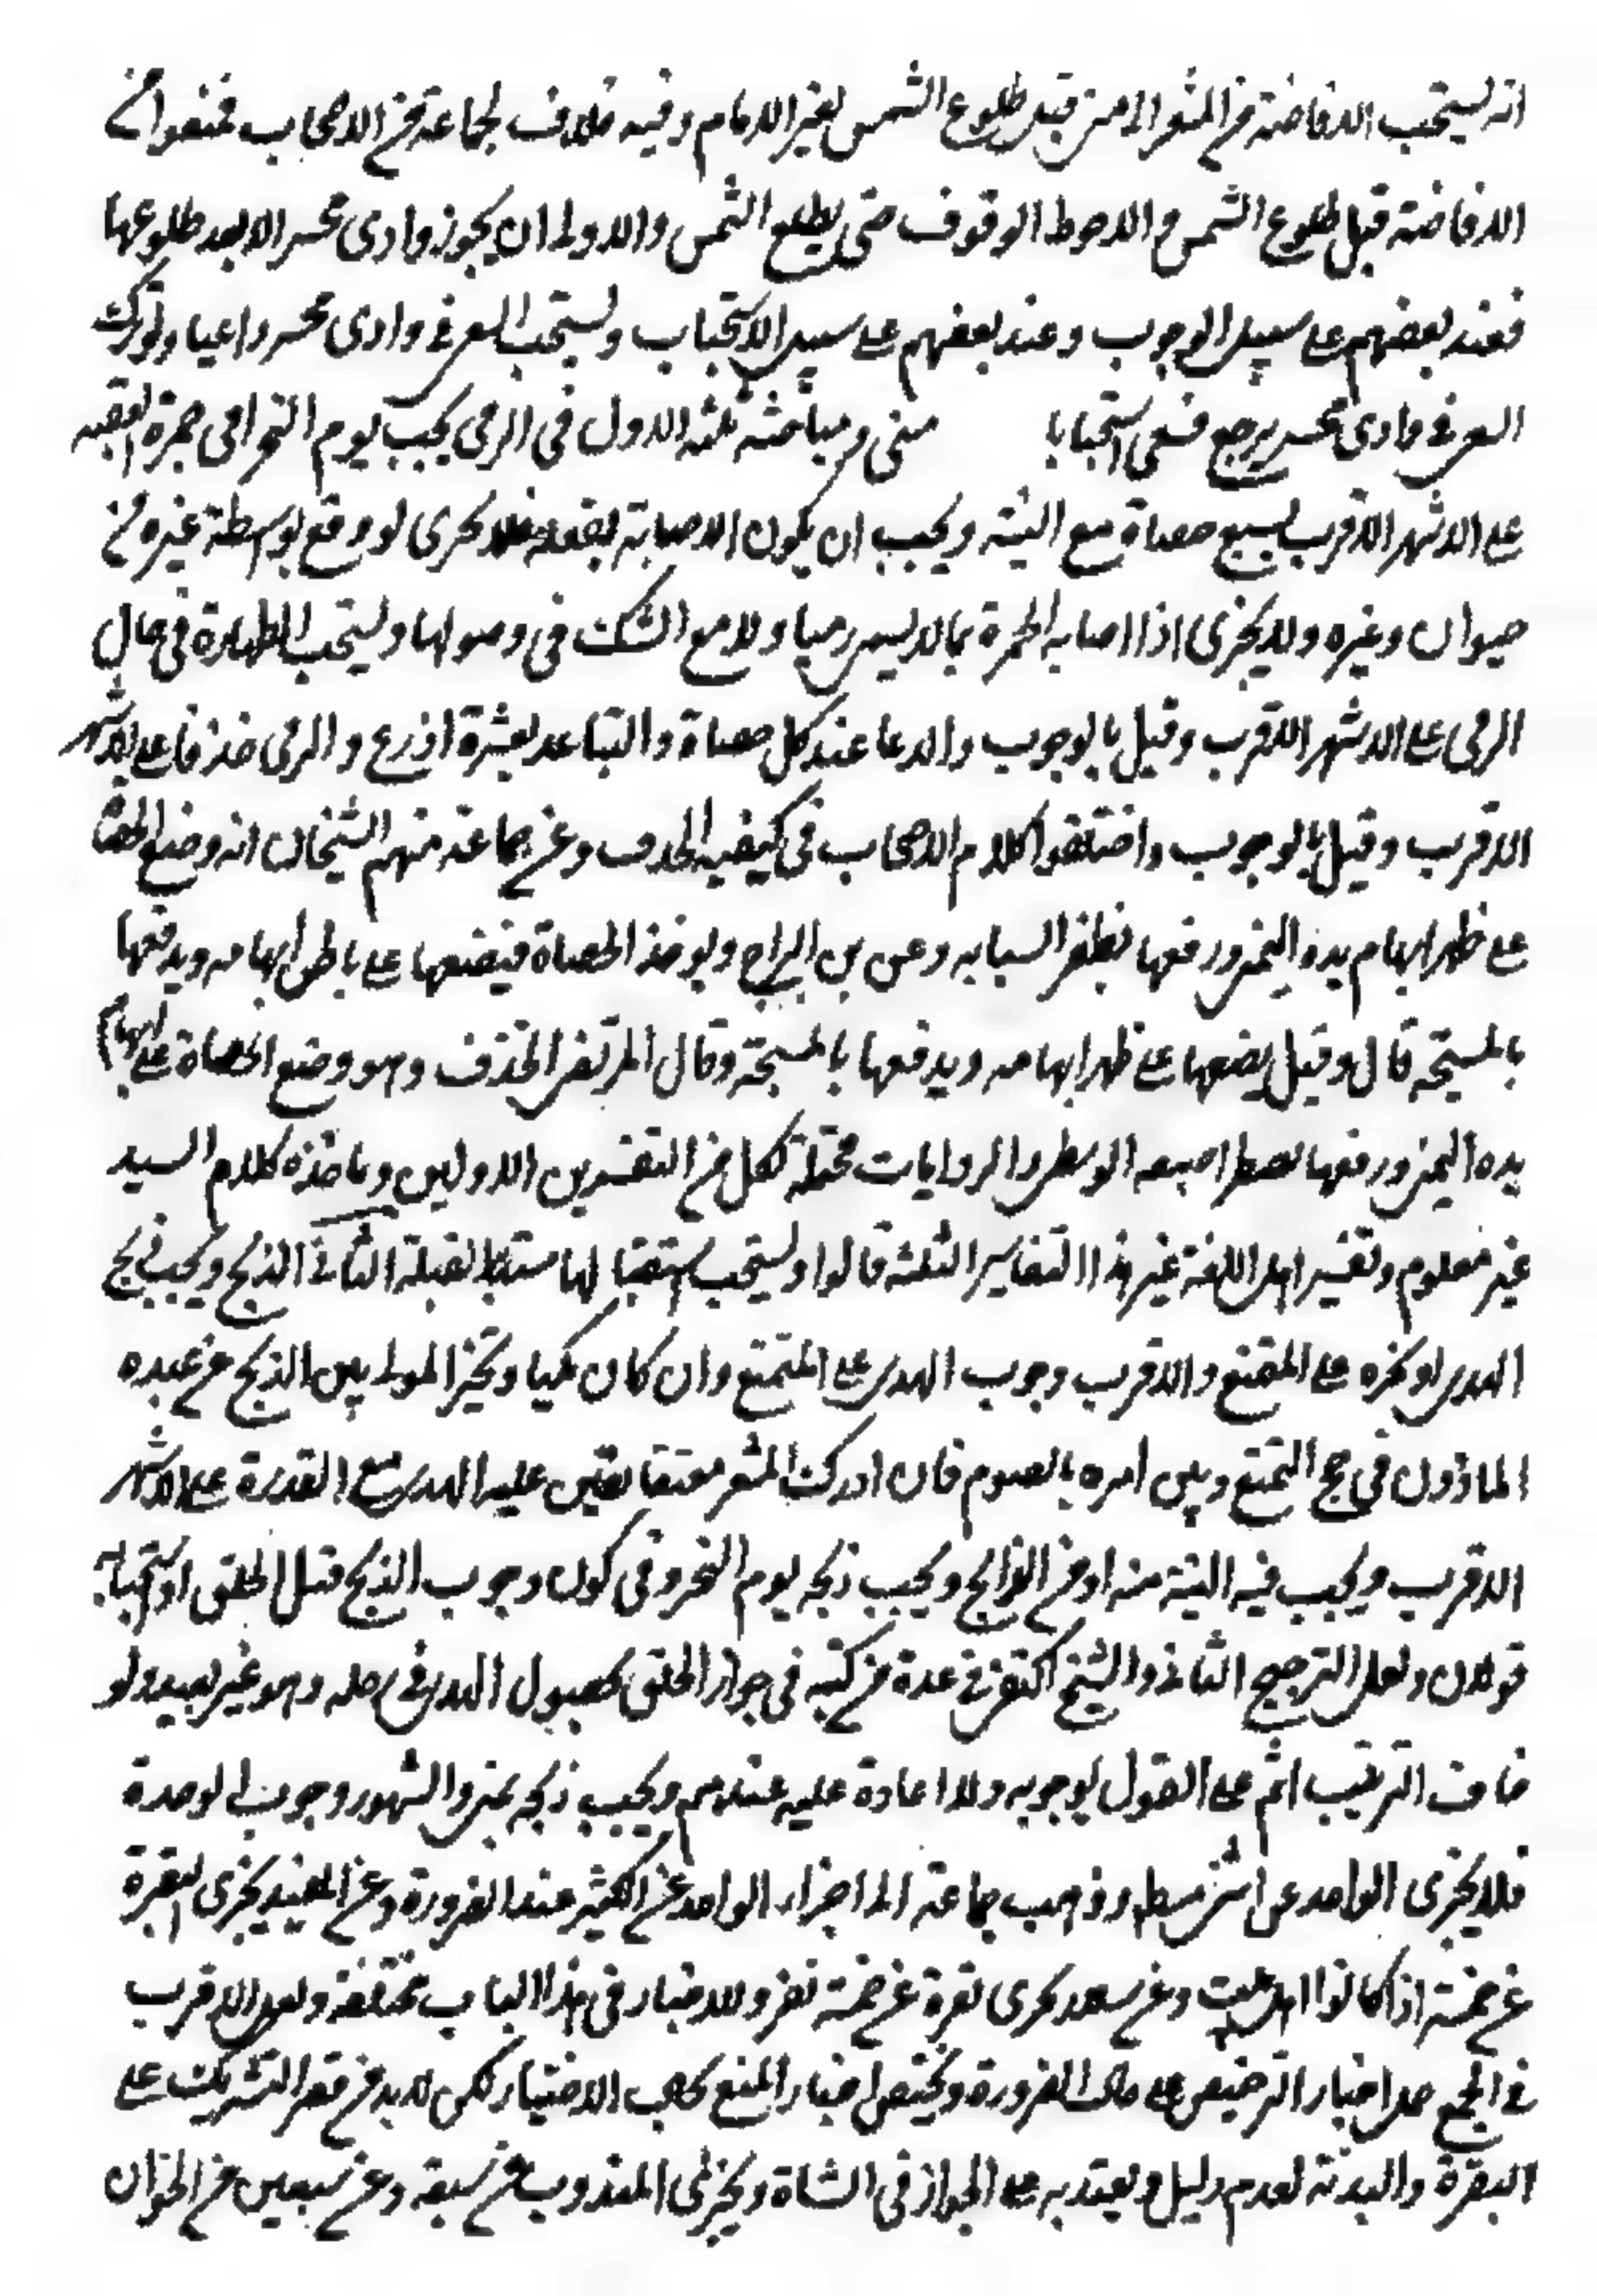 انه يستحب الافاضة من المشعر الى منى قبل طلوع الشمس لغير الامام وفيه خلاف لجماعة من الاصحاب فمنعوا من
الافاضة قبل طلوع الشمس والاحوط الوقوف حتى يطلع الشمس والاولى ان يجوز وادى محسر الا بعد طلوعها
فعند بعضهم على سبيل الوجوب وعند بعضهم على سبيل الاستحباب ويستحب السعى فى وادى محسر داعيا ولو ترك
السعى فى وادى محسر يرجع فسعى استحبابا منى ومباحثه ثلثه الاول فى الرمى يجب يوم النحر رمى جمرة العقبه
على الاشهر الاقرب بسبع حصاة مع النية ويجب ان يكون الاصابة بفعله فلا يجزى لو وقع بواسطة غيره من
حيوان وغيره ولا يجزى اذا اصابه الجمرة بما لا يسمى رميا ولا مع الشك فى وصولها ويستحب الطهارة فى حال
الرمى على الاشهر الاقرب وقيل بالوجوب والدعا عند كل حصاة والتباعد بعشرة اذرع والرمى خذفا على الاشهر
الاقرب وقيل بالوجوب واختلفوا كلام الاصحاب فى كيفيه الخذف وعن جماعة منهم الشيخان انه وضع الحصاة
على ظهر ابهام يده اليمنى ورفعها بظفر السبابه وعن بن البراج ويوخذ الحصاة فيضعها على باطن ابهامه ويدفعها
بالمسبحة قال وقيل يضعها على ظهر ابهامه ويدفعها بالمسبحة وقال المرتضى الخذف وهو وضع الحصاة على ابهام
يده اليمنى ورفعها بظفر اصبعه الوسطى والروايات محتملة لكل من التفسيرين الاولين وماخذه كلام السيد
غير معلوم وتفسير اهل اللغة غير هذا التفاسير الثلثه قالوا ويستحب استقبالها مستدبر القبلة الثانى الذبح ويجب ذبح
الهدى او نحره على المتمتع والاقرب وجوب الهدى على المتمتع وان كان مكيا ويخير المولى بين الذبح عن عبده
الماذون فى حج التمتع وبين امره بالصوم فان ادرك المشعر معتقا تعين عليه الهدى مع القدرة على الاشهر
الاقرب ويجب فيه النية منه او من الذابح ويجب ذبحه يوم النحر وفى كون وجوب الذبح قبل الحلق او استحبابه
قولان ولعل الترجيح الثانى والشيخ اكتفى فى عدة من كتبه فى جواز الحلق بحصول الهدى فى رحله وهو غير بعيد ولو
خالف الترتيب اثم على القول بوجوبه ولا اعادة عليه عندهم ويجب ذبحه بمنى والمشهور وجوب الوحدة
فلا يجزى الواحد عن اثنين مطلقا وذهب جماعة الى اجزاء الواحد عن الكثير عند الضرورة وعن المفيد يجزى البقرة
عن خمسة اذا كانوا اهل بيت وعن سلار يجزى بقرة عن خمسة نفر والاخبار فى هذا الباب مختلفة ولعل الاقرب
فى الجمع حمل اخبار الترخيص على حال الضرورة ويختص اخبار المنع بحال الاختيار لكن لا بد من قصر التشريك على
البقرة والبدنة لعدم دليل يعتد به على الجواز فى الشاة ويجزى المندوب عن سبعة وعن سبعين من الخوان